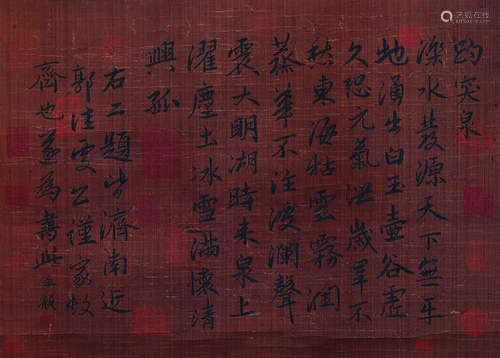 趵突泉
濼水發源天下無平
地涌出白玉壺谷虛
久恐元氣洩歲旱不
愁東海枯雲霧潤
蒸華不注波瀾聲
震大明湖時来泉上
濯塵土冰雪滿懷清
興孤
右二題皆濟南近
郭佳處公謹家故
齊也遂為書此孟頫
艺狐在线